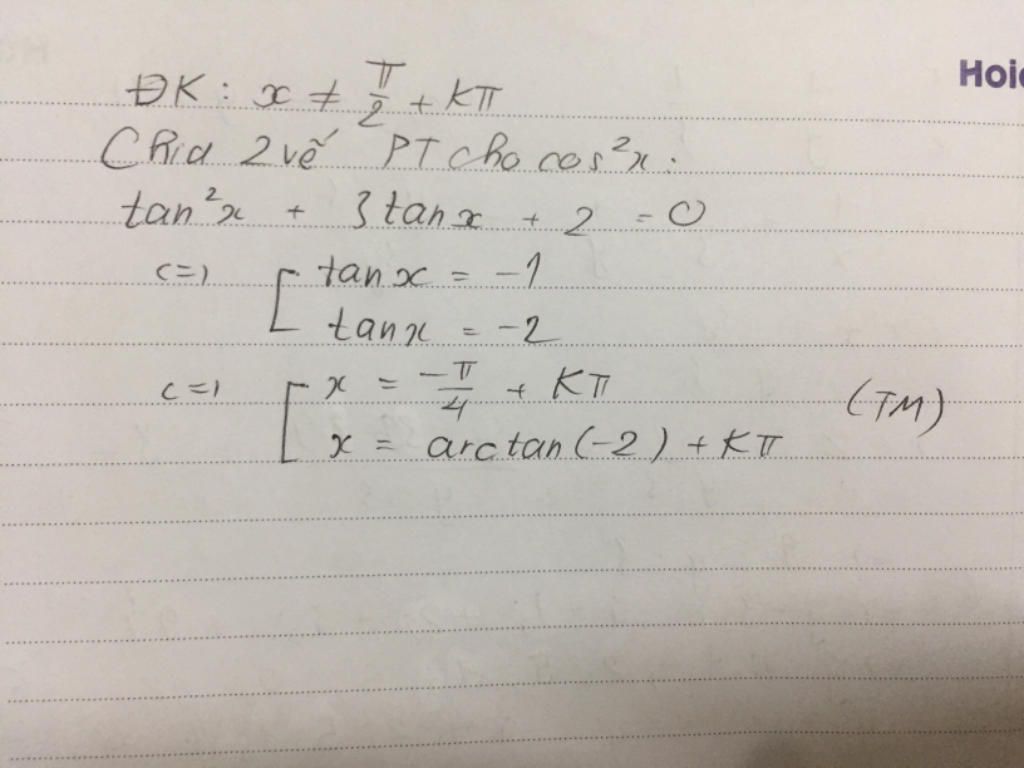 Hoic
ĐK : x ≠ π/2 + Kπ
Chia 2 vế PT cho cos²x :
tan²x + 3tanx + 2 = 0
<=> [ tanx = -1
tanx = -2
<=> [ x = -π/4 + Kπ (TM)
x = arctan(-2) + Kπ